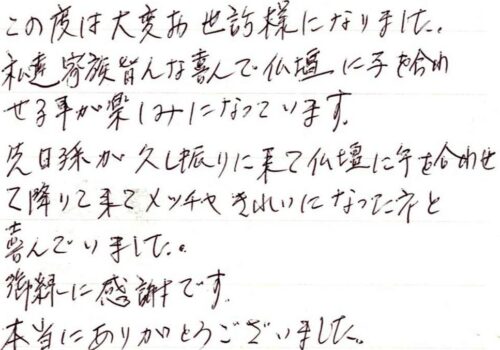 この度は大変お世話様になりました。
私達家族皆んな喜んで仏壇に手を合わ
せる事が楽しみになっています。
先日孫が久し振りに来て仏壇に手を合わせ
て降りて来てメッチャきれいになったネと
喜んでいました。
御縁に感謝です。
本当にありがとうございました。